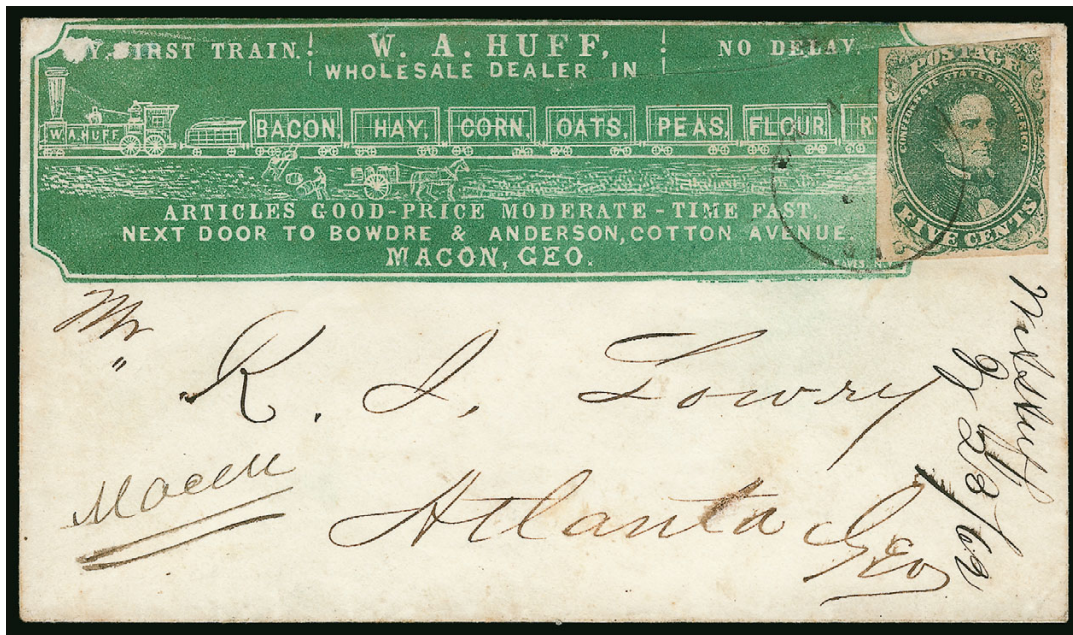 BY FIRST TRAIN. W. A. HUFF, NO DELAY.
WHOLESALE DEALER IN
W. A. HUFF BACON, HAY, CORN, OATS, PEAS, FLOUR RY
ARTICLES GOOD-PRICE MODERATE-TIME FAST.
NEXT DOOR TO BOWDRE & ANDERSON, COTTON AVENUE
MACON, GEO.
POSTAGE
CONFEDERATE STATES OF AMERICA
FIVE CENTS
Mr
" R. J. Lowry
Macon
Atlanta Geo
28/62